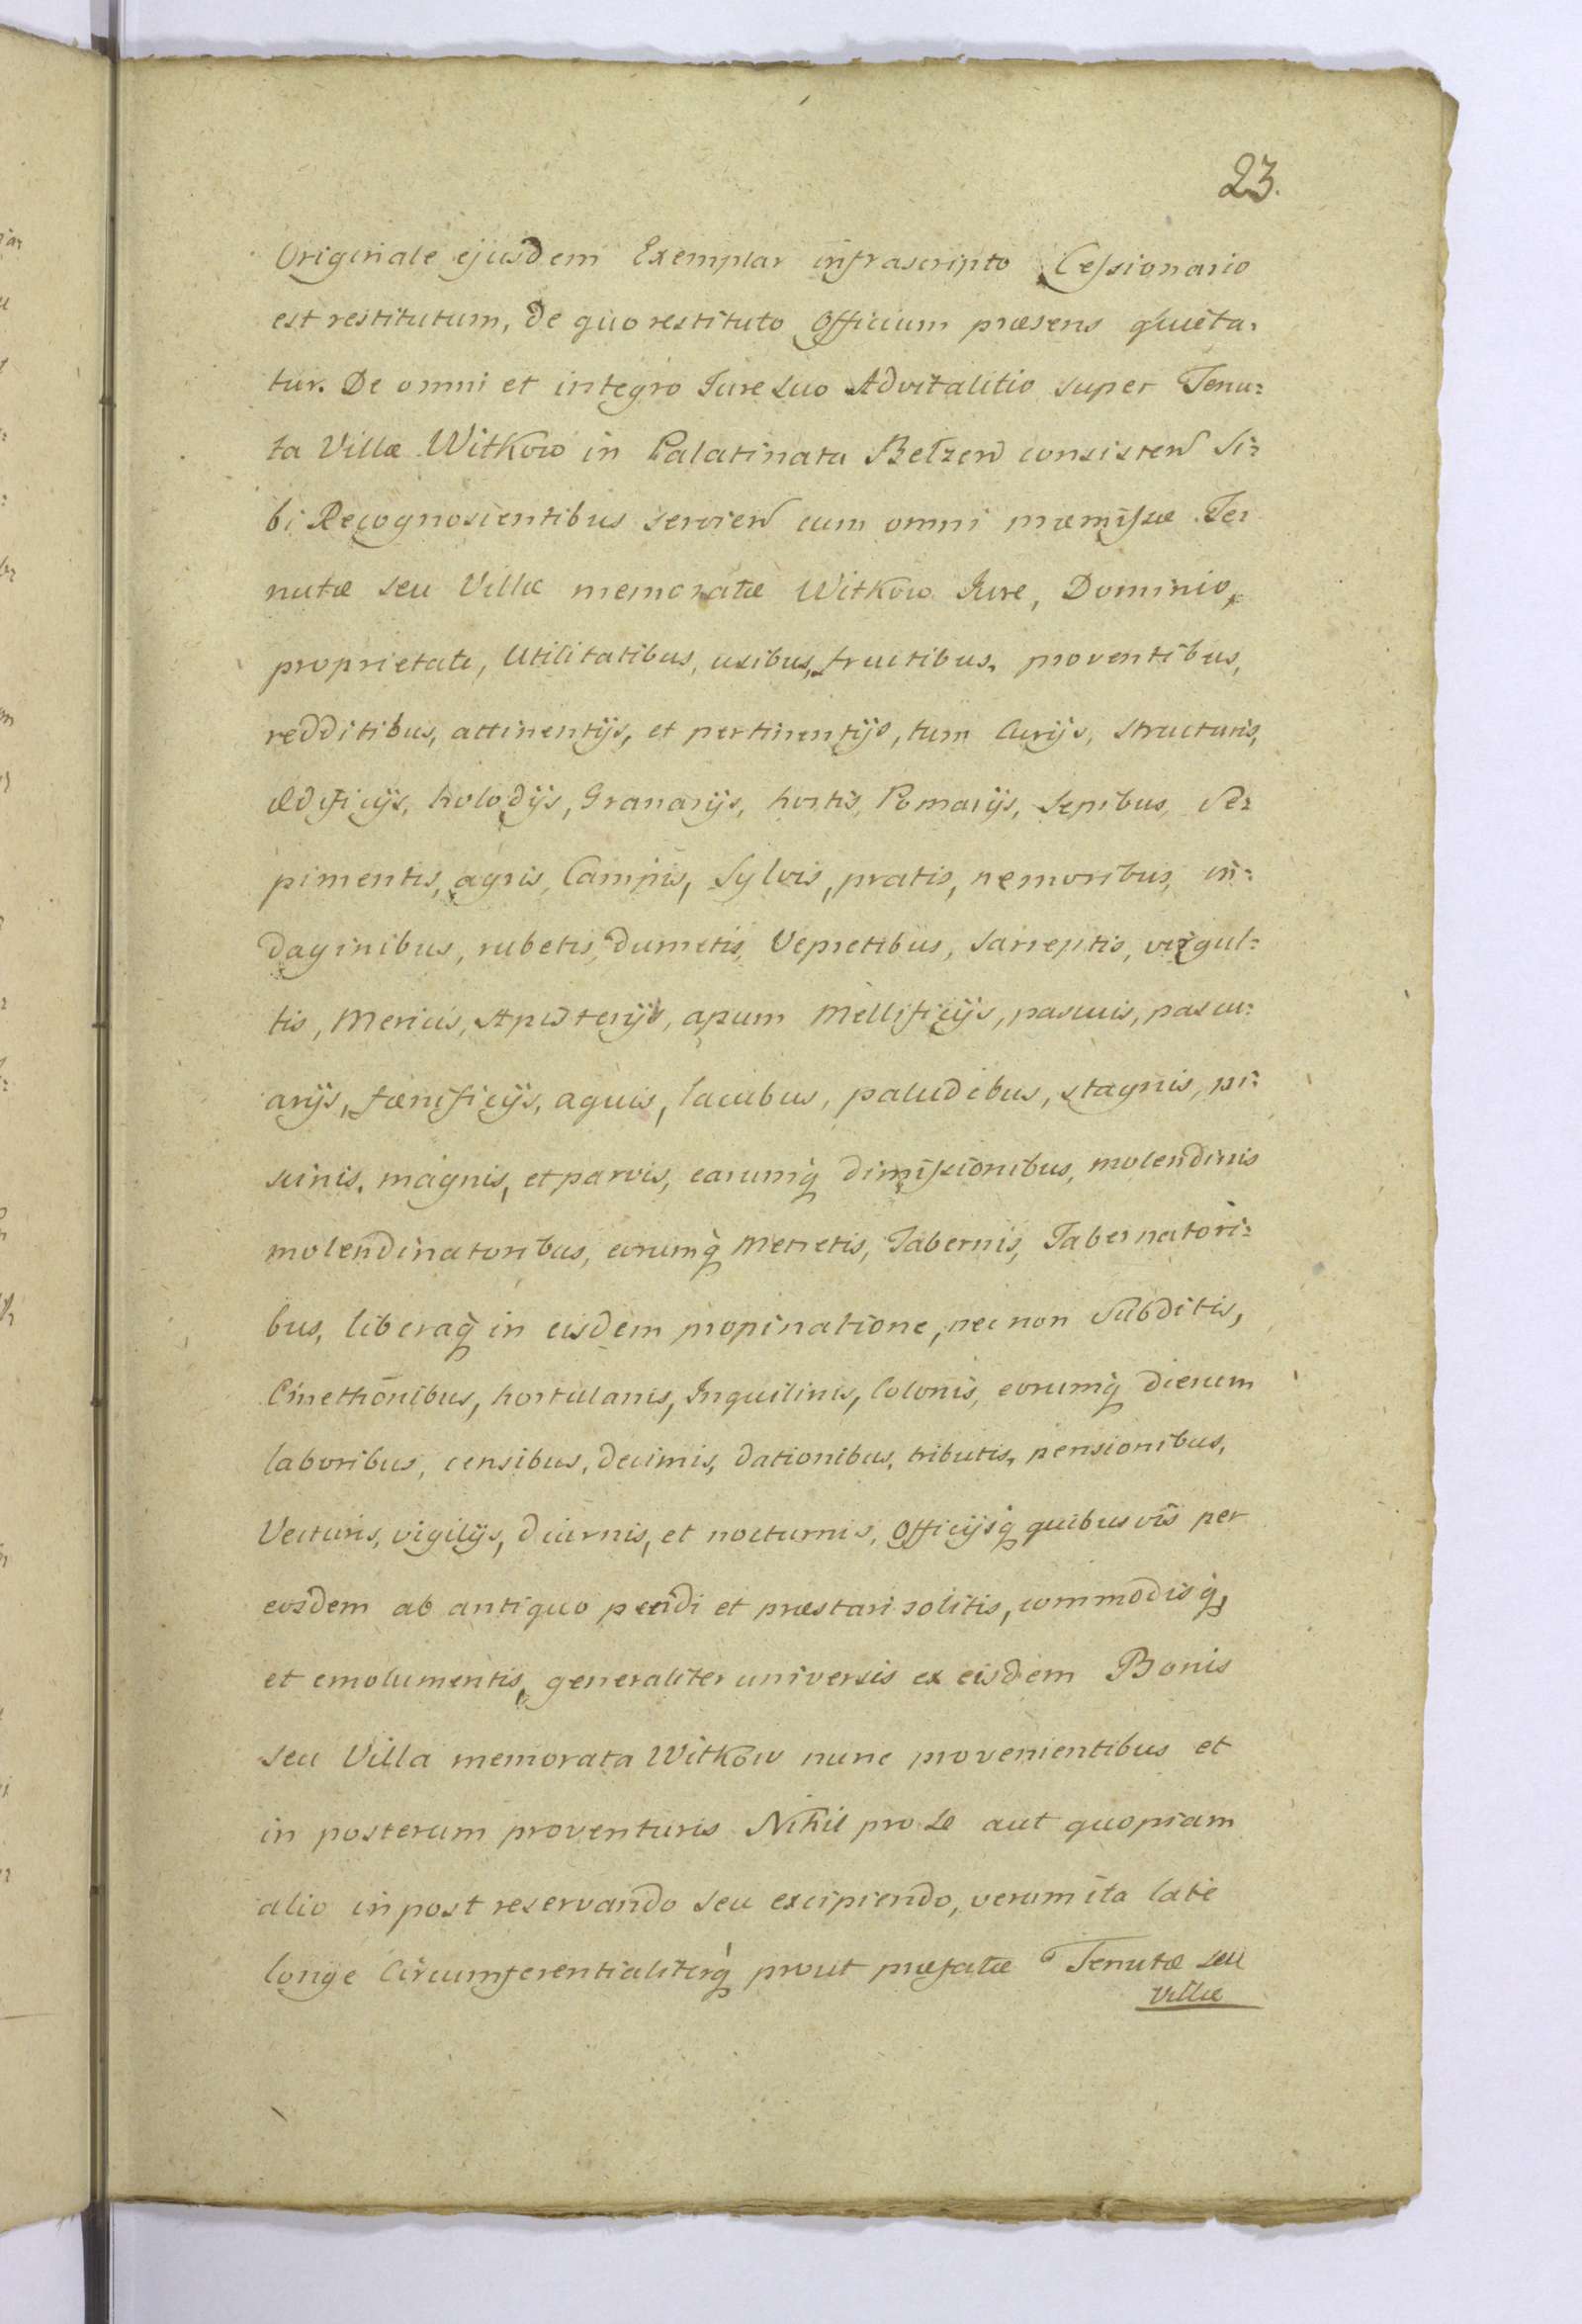 23.
Originale ejusdem Exemplar infrascripto Cessionario
est restitutum, De quo restituto Officium præsens quieta-
tur. De omni et integro Jure suo Advitalitio super Tenu-
ta Villæ Witkow in Palatinatu Belzen consisten Si-
bi Recognoscientibus servien cum omni præmissæ Te-
nutæ seu Villæ memoratæ Witkow Jure, Dominio,
proprietate, Utilitatibus, usibus, fructibus, proventibus,
redditibus, attinentijs, et pertinentijs, tum Curijs, structuris,
ædificijs, holodijs, Granarijs, hortis, Pomarijs, Sepibus, Se-
pimentis, agris, Campis, Sylvis, pratis, nemoribus, in-
daginibus, rubetis, dumetis, Vepretibus, Sarreptis, virgul-
tis, Mericis, Apisterijs, apum Mellificijs, pascuis, pascu-
arijs, fænificijs, aquis, lacubus, paludibus, stagnis, pi-
scinis, magnis, et parvis, earumq̀ dimissionibus, molendinis
molendinatoribus, eorumq̀ Metretis, Tabernis, Tabernatori-
bus, liberaq̀ in eisdem propinatione, nec non Subditis,
Cmethonibus, hortulanis, Inquilinis, Colonis, eorumq̀ dierum
laboribus, censibus, decimis, dationibus, tributis, pensionibus,
Vecturis, vigilijs, diurnis, et nocturnis, Officijsq̀ quibusvis per
eosdem ab antiquo pendi et præstari solitis, commodisq̀,
et emolumentis, generaliter universis ex eisdem Bonis
seu Villa memorata Witkow nunc provenientibus et
in posterum proventuris Nihil pro se aut quopiam
alio inpost reservando seu excipiendo, verum ita late
longe Circumferentialiterq̀ prout præfatæ Tenutæ seu
Villæ